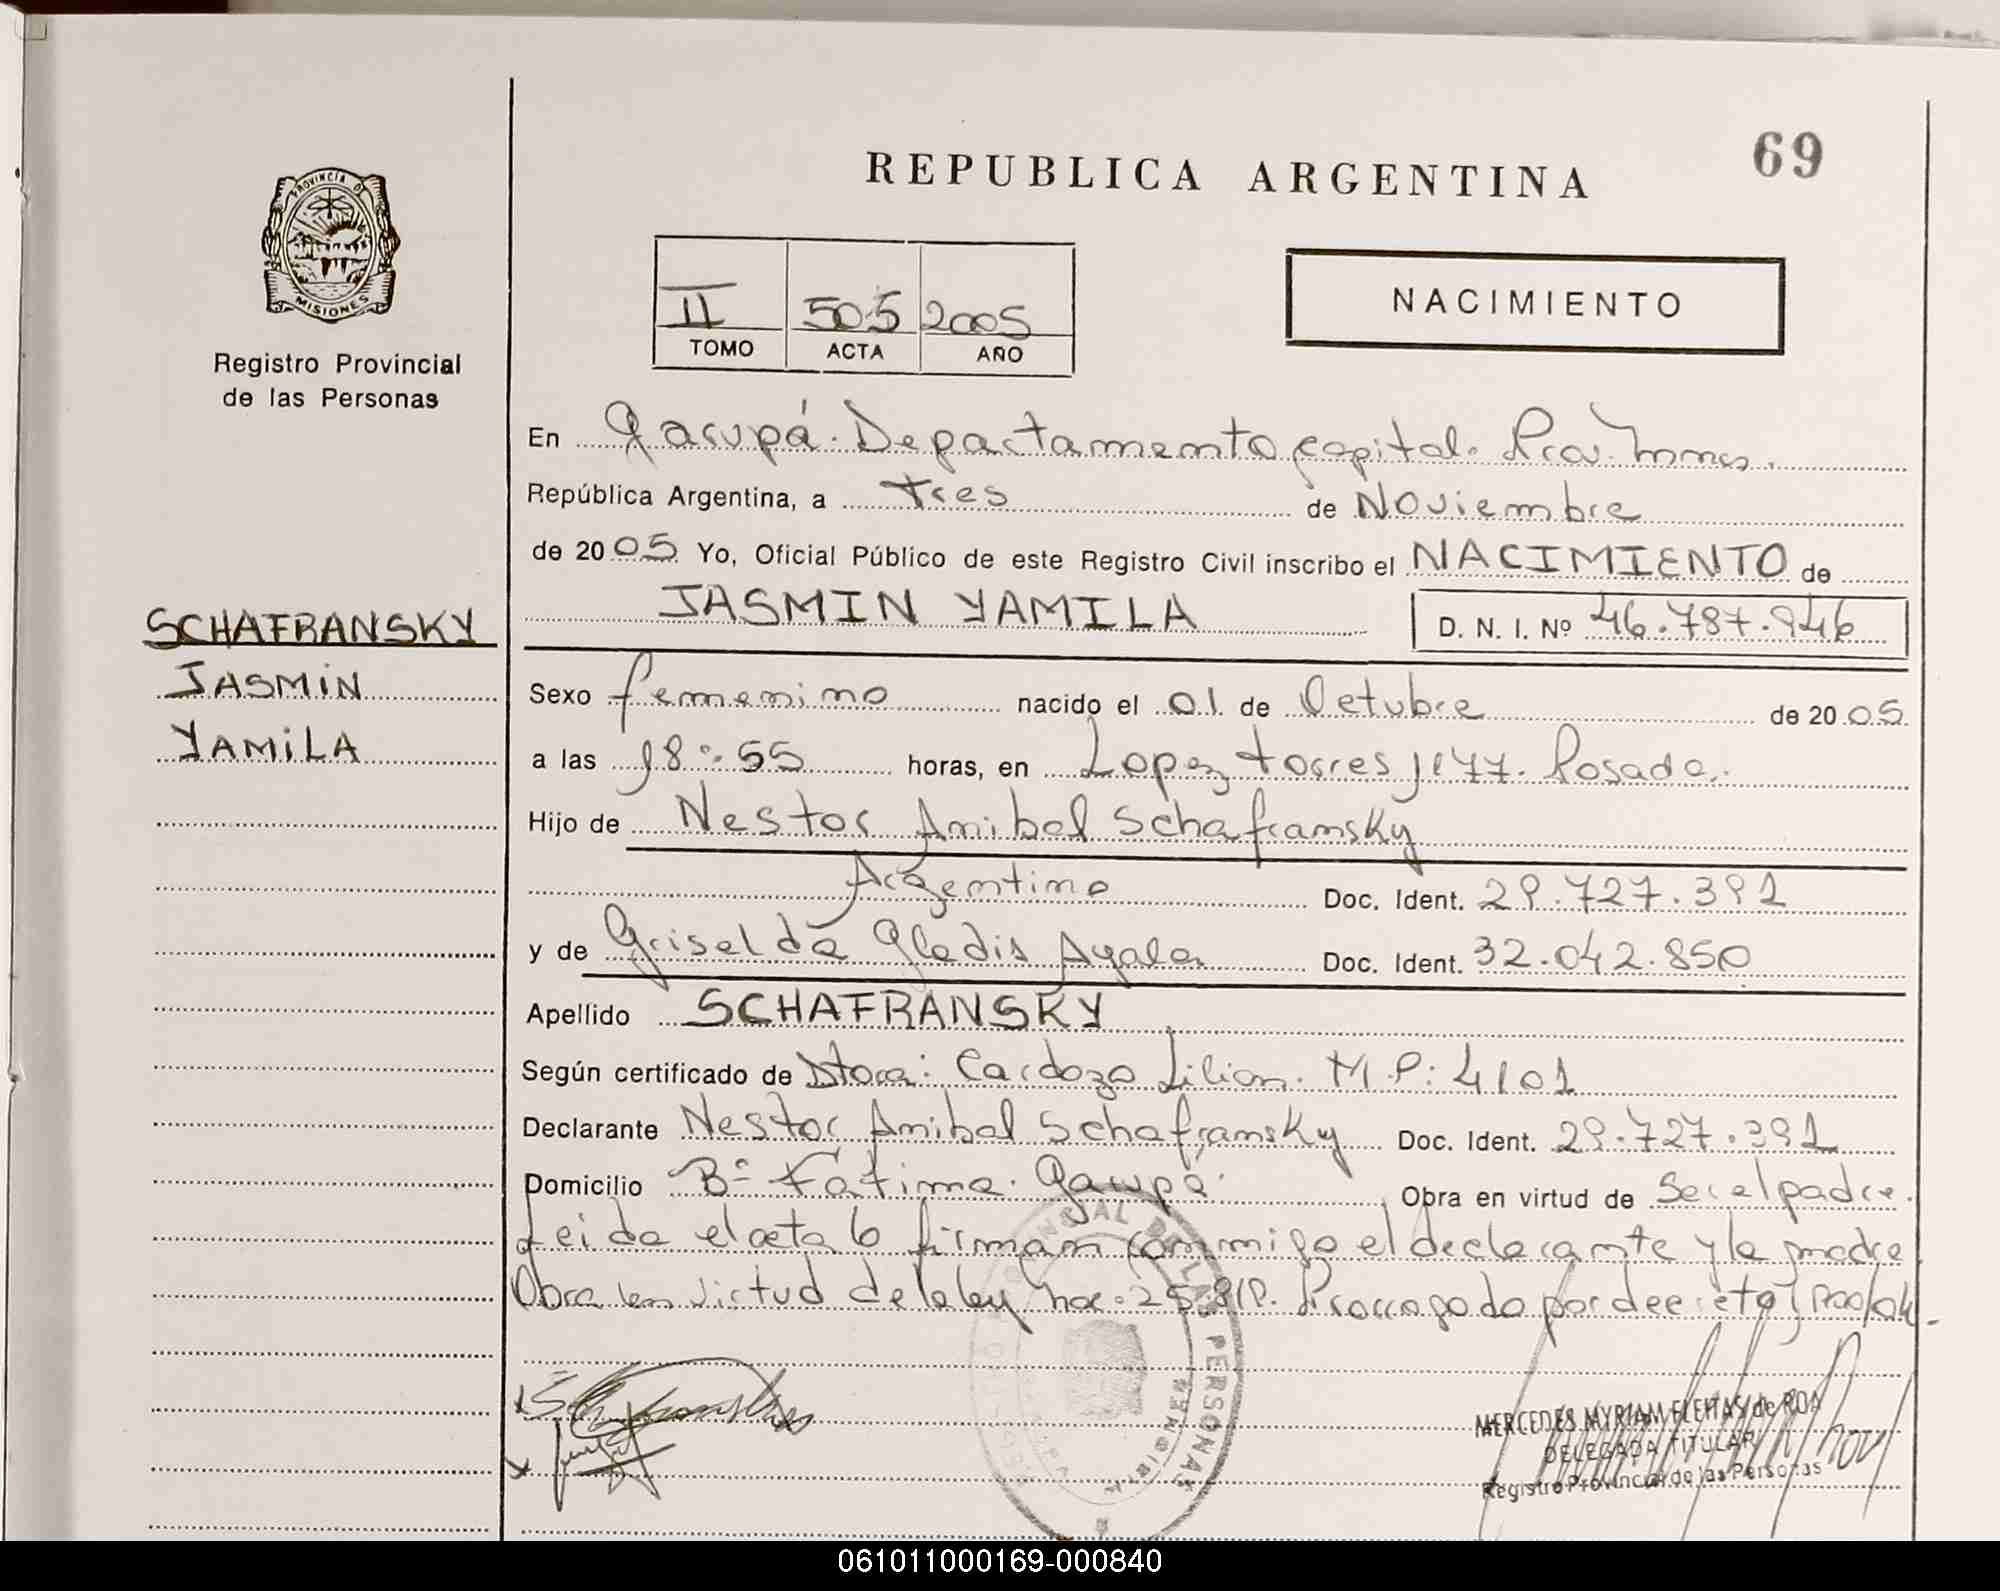 69
REPUBLICA ARGENTINA
PROVINCIA DE
MISIONES
Registro Provincial
de las Personas
II 505 2005
TOMO ACTA AÑO
NACIMIENTO
En Garupá. Departamento capital. Prov. Mnes.
República Argentina, a tres de Noviembre
de 2005 Yo, Oficial Público de este Registro Civil inscribo el NACIMIENTO de
JASMIN YAMILA D. N. I. Nº 46.787.946
SCHAFRANSKY
JASMIN
YAMILA
Sexo femenino nacido el 01 de Octubre de 2005
a las 18:55 horas, en Lopez torres 1177. Posadas.
Hijo de Nestor Anibal Schafransky
Argentino Doc. Ident. 29.727.391
y de Griselda Gladis Ayala Doc. Ident. 32.042.850
Apellido SCHAFRANSKY
Según certificado de Dtora: Cardozo Lilian. M.P: 4101
Declarante Nestor Anibal Schafransky Doc. Ident. 29.727.391
Domicilio Bº Fatima. Garupá. Obra en virtud de Ser el padre.
Leida el acta lo firman conmigo el declarante y la madre
Obra en virtud de la ley nac. 25.819. Prorrogado por decreto
MERCEDES MYRIAM FLEITAS de ROA
DELEGADA TITULAR
Registro Provincial de las Personas
DE LAS PERSONAS
061011000169-000840